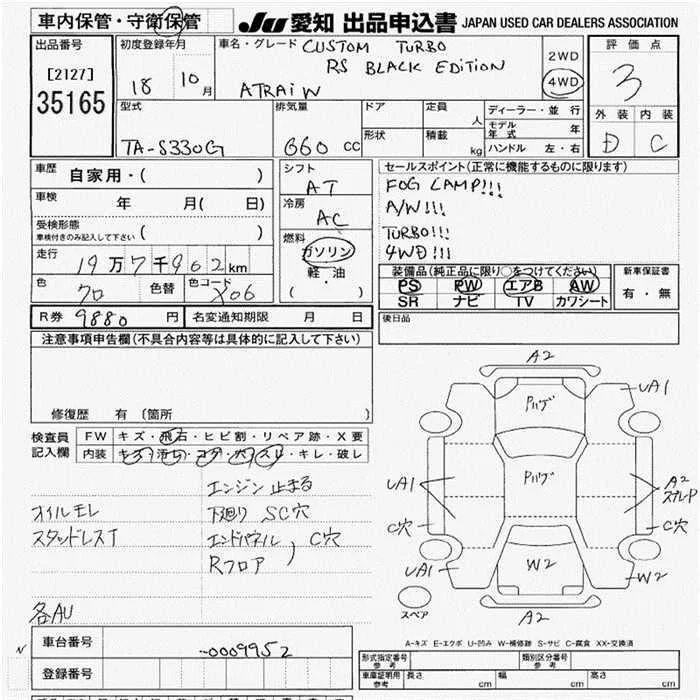 車内保管・守衛保管
JU 愛知 出品申込書 JAPAN USED CAR DEALERS ASSOCIATION
出品番号
[2127]
35165
初度登録年月
18 10月
車名・グレード CUSTOM TURBO
RS BLACK EDITION
ATRAI W
2WD
4WD
評価点
3
外装 内装
D C
型式
TA-S330G
排気量
660 cc
ドア
形状
定員
人
積載
kg
ディーラー・並行
モデル年式 年
ハンドル 左・右
車歴
自家用・( )
車検
年 月( 日)
受検形態
車検付きのみ記入して下さい ( )
走行
19万7千962km
色
クロ
色替
色コード
X06
シフト
AT
冷房
AC
燃料
ガソリン
軽・油
( )
セールスポイント(正常に機能するものに限ります)
FOG LAMP!!!
A/W!!!
TURBO!!!
4WD!!!
装備品(純正品に限り○をつけてください)
PS PW エアB AW
SR ナビ TV カワシート
新車保証書
有・無
R券 9880 円
名変通知期限 月 日
後日品
注意事項申告欄(不具合内容等は具体的に記入して下さい)
修復歴 有〔箇所 〕
検査員記入欄
FW キズ・飛石・ヒビ割・リペア跡・X要
内装 キズ・汚れ・コゲ・穴・スレ・キレ・破レ
エンジン止まる
オイルモレ 下廻り SC穴
スタッドレスT エンドパネル ) C穴
Rフロア
各AU
A2
UA1
Pハゲ
UA1
Pハゲ
A2
スレP
C穴
C穴
UA1
W2
W2
スペア
A2
A-キズ E-エクボ U-凹み W-補修跡 S-サビ C-腐食 XX-交換済
N
車台番号
-0009952
登録番号
形式指定番号
参考
類別区分番号
参考
車庫証明用
参考
長さ cm
幅 cm
高さ cm